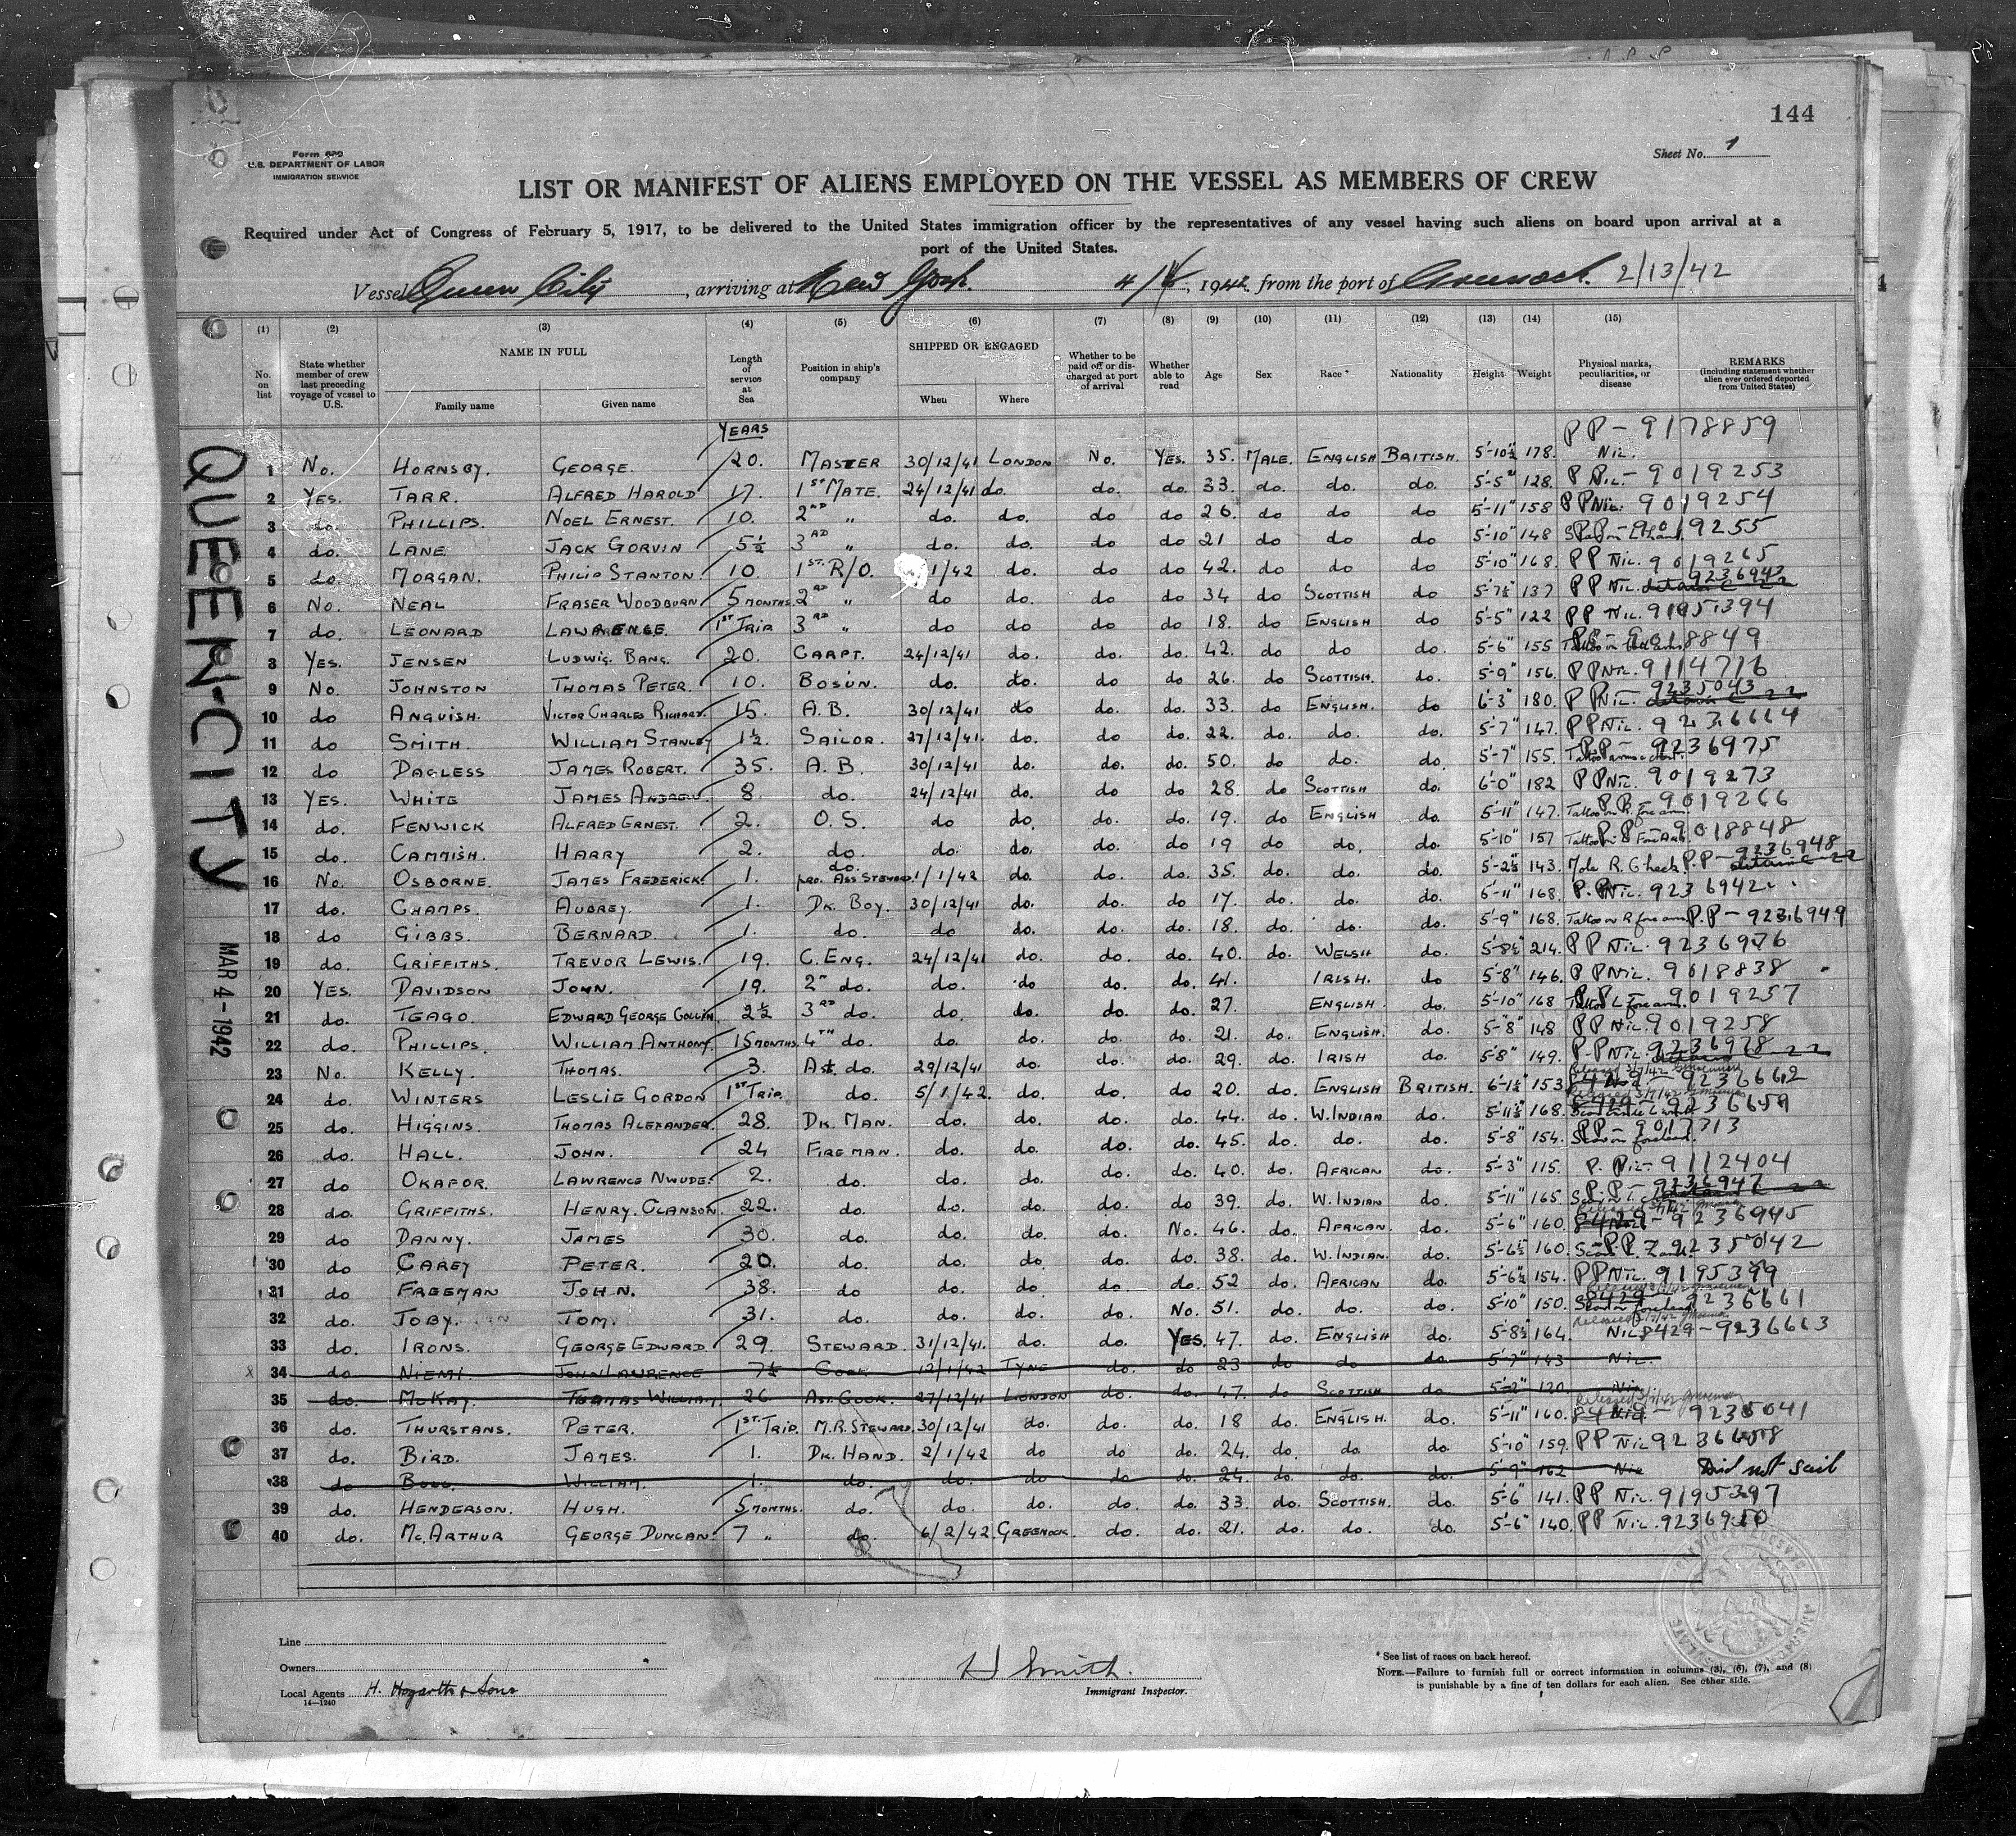 144
Form 689
U.S. DEPARTMENT OF LABOR
IMMIGRATION SERVICE
Sheet No. 1
LIST OR MANIFEST OF ALIENS EMPLOYED ON THE VESSEL AS MEMBERS OF CREW
Required under Act of Congress of February 5, 1917, to be delivered to the United States immigration officer by the representatives of any vessel having such aliens on board upon arrival at a
port of the United States.
Vessel Queen City, arriving at New York. 4/, 1942 from the port of Greenock. 2/13/42
(1) (2) (3) (4) (5) (6) (7) (8) (9) (10) (11) (12) (13) (14) (15)
No. on list State whether member of crew last preceding voyage of vessel to U.S. NAME IN FULL Family name Given name Length of service at Sea Position in ship's company SHIPPED OR ENGAGED When Where Whether to be paid off or discharged at port of arrival Whether able to read Age Sex Race* Nationality Height Weight Physical marks, peculiarities, or disease REMARKS (including statement whether alien ever ordered deported from United States)
QUEEN-CITY
MAR 4-1942
YEARS
1 No. HORNSBY. GEORGE. 20. MASTER 30/12/41 LONDON No. YES. 35. MALE. ENGLISH BRITISH. 5'-10½ 178. Nil. PP-9178859
2 YES. TARR. ALFRED HAROLD 17. 1ST MATE. 24/12/41 do. do. do. 33. do. do. do. 5'-5" 128. P Nil.-9019253
3 do. PHILLIPS. NOEL ERNEST. 10. 2ND " do. do. do do 26. do do do 5'-11" 158 PP Nil. 9019254
4 do. LANE JACK GORVIN 5½ 3RD " do. do. do do 21 do do do 5'-10" 148 PP-9019255
5 do. MORGAN. PHILIP STANTON. 10. 1ST. R/O. 1/42 do. do do. 42. do do do 5'-10" 168. PP Nil. 9019265
6 No. NEAL FRASER WOODBURN 5 MONTHS. 2ND " do do do do 34 do SCOTTISH do 5'-7½ 137 PP Nil. 9236943
7 do. LEONARD LAWRENCE. 1ST TRIP 3RD " do do do do 18. do ENGLISH do 5'-5" 122 PP Nil. 9195394
8 YES. JENSEN LUDWIG BANG. 20. CARPT. 24/12/41 do. do do. 42. do do do. 5'-6" 155 PP-9018849
9 No. JOHNSTON THOMAS PETER. 10. BOSUN. do. do. do do 26. do SCOTTISH. do. 5'-9" 156. PP Nil. 9114716
10 do ANGUISH. VICTOR CHARLES RICHARD. 15. A.B. 30/12/41 do do do. 33. do. ENGLISH. do 6'-3" 180. PP Nil. 9235043
11 do SMITH. WILLIAM STANLEY 1½. SAILOR. 27/12/41. do. do do. 22. do. do. do. 5'-7" 147. PP Nil. 9236664
12 do DAGLESS. JAMES ROBERT. 35. A.B. 30/12/41 do. do. do. 50. do do. do. 5'-7" 155. PP-9236975
13 YES. WHITE JAMES ANDREW. 8. do. 24/12/41 do. do do 28. do SCOTTISH do. 6'-0" 182 PP Nil. 9019273
14 do. FENWICK ALFRED ERNEST. 2. O.S. do do. do. do. 19. do ENGLISH do. 5'-11" 147. Tattoo on R. fore arm. PP-9019266
15 do. CAMMISH. HARRY 2. do. do do. do. do. 19 do do. do. 5'-10" 157 PP-9018848
16 No. OSBORNE. JAMES FREDERICK. 1. do. pro. Ass STEWARD. 1/1/42 do. do. do. 35. do. do. do. 5'-2½ 143. Mole R. Cheek P.P-9236948
17 do. CHAMPS. AUBREY. 1. DK. BOY. 30/12/41 do. do. do. 17. do. do. do. 5'-11" 168. P.P Nil. 9236942
18 do GIBBS. BERNARD. 1. do. do do. do. do. 18. do. do. do. 5'-9" 168. Tattoo on R fore arm P.P-9236949
19 do. GRIFFITHS. TREVOR LEWIS. 19. C. ENG. 24/12/41 do. do. do. 40. do. WELSH do. 5'-8½ 214. PP Nil. 9236976
20 YES. DAVIDSON JOHN. 19. 2ND do. do. do do. do. 41. IRISH. do 5'-8" 146. PP Nil. 9018838
21 do. TEAGO. EDWARD GEORGE COLLIN. 2½ 3RD do. do. do. do. do. 27. ENGLISH. do. 5'-10" 168 Tattoo L. fore arm. PP-9019257
22 do. PHILLIPS. WILLIAM ANTHONY. 15 MONTHS. 4TH do. do. do. do. do. 21. do. ENGLISH. do. 5'-8" 148 PP Nil. 9019258
23 No. KELLY. THOMAS. 3. Ast. do. 29/12/41 do. do. do. 29. do. IRISH do. 5'8" 149. P.P Nil. 9236978
24 do. WINTERS LESLIE GORDON 1ST TRIP. do. 5/1/42. do. do. do. 20. do. ENGLISH BRITISH. 6'-1½ 153 9236662
25 do. HIGGINS. THOMAS ALEXANDER. 28. DK. MAN. do. do. do. do. 44. do. W. INDIAN do. 5'-11½ 168. 9236659
26 do. HALL. JOHN. 24 FIREMAN. do. do. do. 45. do. do. do. 5'-8" 154. Scar on forehead. PP-9017713
27 do OKAFOR. LAWRENCE NWUDE. 2. do. do. do. do. do. 40. do. AFRICAN do. 5'-3" 115. P. P Nil-9112404
28 do. GRIFFITHS. HENRY. CLANSON. 22. do. do. do. do. do. 39. do. W. INDIAN do. 5'-11" 165 P.P-9236947
29 do DANNY. JAMES 30. do. do. do. do. No. 46. do. AFRICAN. do. 5'-6" 160. 8429-9236945
30 do CAREY PETER. 20. do. do. do. do. do. 38. do. W. INDIAN. do. 5'-6½ 160. P.P-9235042
31 do FREEMAN JOHN. 38. do do. do. do. do. 52 do. AFRICAN do. 5'-6½ 154. PP Nil. 9195399
32 do. TOBY. TOM. 31. do. do. do. do. No. 51. do. do. do. 5'-10" 150. 8429-9236661
33 do. IRONS. GEORGE EDWARD. 29. STEWARD. 31/12/41. do. do. YES. 47. do. ENGLISH do. 5'-8½ 164. Nil 8429-9236663
34 do. NIEMI. JOHN LAWRENCE 7½ COOK 12/1/42 TYNE do. do 23 do do do. 5'-7" 143 Nil.
35 do. McKAY. THOMAS WILLIAM. 26 Ast. COOK. 27/12/41 LONDON do. do. 47. do SCOTTISH do 5'-2" 120. Nil
36 do. THURSTANS. PETER. 1ST. TRIP. M.R. STEWARD. 30/12/41 do. do. do. 18 do. ENGLISH. do. 5'-11" 160. 9235041
37 do. BIRD. JAMES. 1. DK. HAND. 2/1/42 do do do. 24. do. do. do. 5'-10" 159. PP Nil 9236658
38 do BULL. WILLIAM. 1. do. do. do do do. 24. do. do. do. 5'-9" 162 Nil Did not sail
39 do. HENDERSON. HUGH. 5 MONTHS. do. do. do. do. do. 33. do. SCOTTISH. do. 5'-6" 141. PP Nil. 9195397
40 do. McARTHUR GEORGE DUNCAN. 7 " do. 6/2/42 GREENOCK. do. do. 21. do. do. do. 5'-6" 140. PP Nil. 9236910
Line
Owners
Local Agents H. Hogarth & Sons
14-1240
H Smith.
Immigrant Inspector.
* See list of races on back hereof.
NOTE.—Failure to furnish full or correct information in columns (3), (6), (7), and (8)
is punishable by a fine of ten dollars for each alien. See other side.